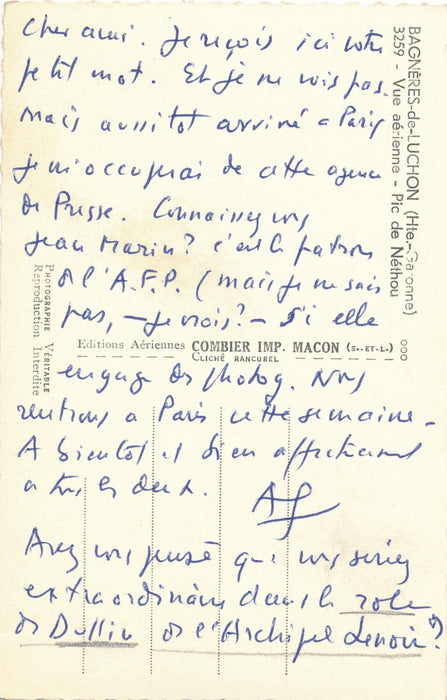 Cher ami. Je reçois ici votre
petit mot. Et je ne vois pas.
Mais aussitot arrivé a Paris
je m'occuperai de cette agence
de Presse. Connaissez vous
Jean Marin? C'est le patron
de l'A.F.P. (mais je ne sais
pas, - je crois? - s'i elle
engage des photog. Nous
rentrons a Paris cette semaine -
A bientot et bien affectueusement
a tous les deux.
Avez vous pensé que vous seriez
extraordinaire dans le role
de Dullin de l'Archipel Lenoir?)
BAGNÈRES-de-LUCHON (Hte.-Garonne)
3259 - Vue aérienne - Pic de Néthou
PHOTOGRAPHIE VÉRITABLE
Reproduction Interdite
Editions Aériennes COMBIER IMP. MACON (S.-ET-L.)
CLICHÉ RANCUREL